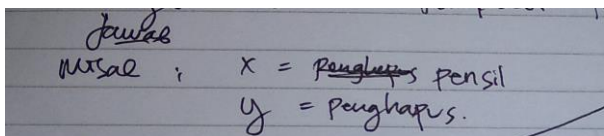 Jawab
Misal : x = penghapus pensil
y = penghapus.